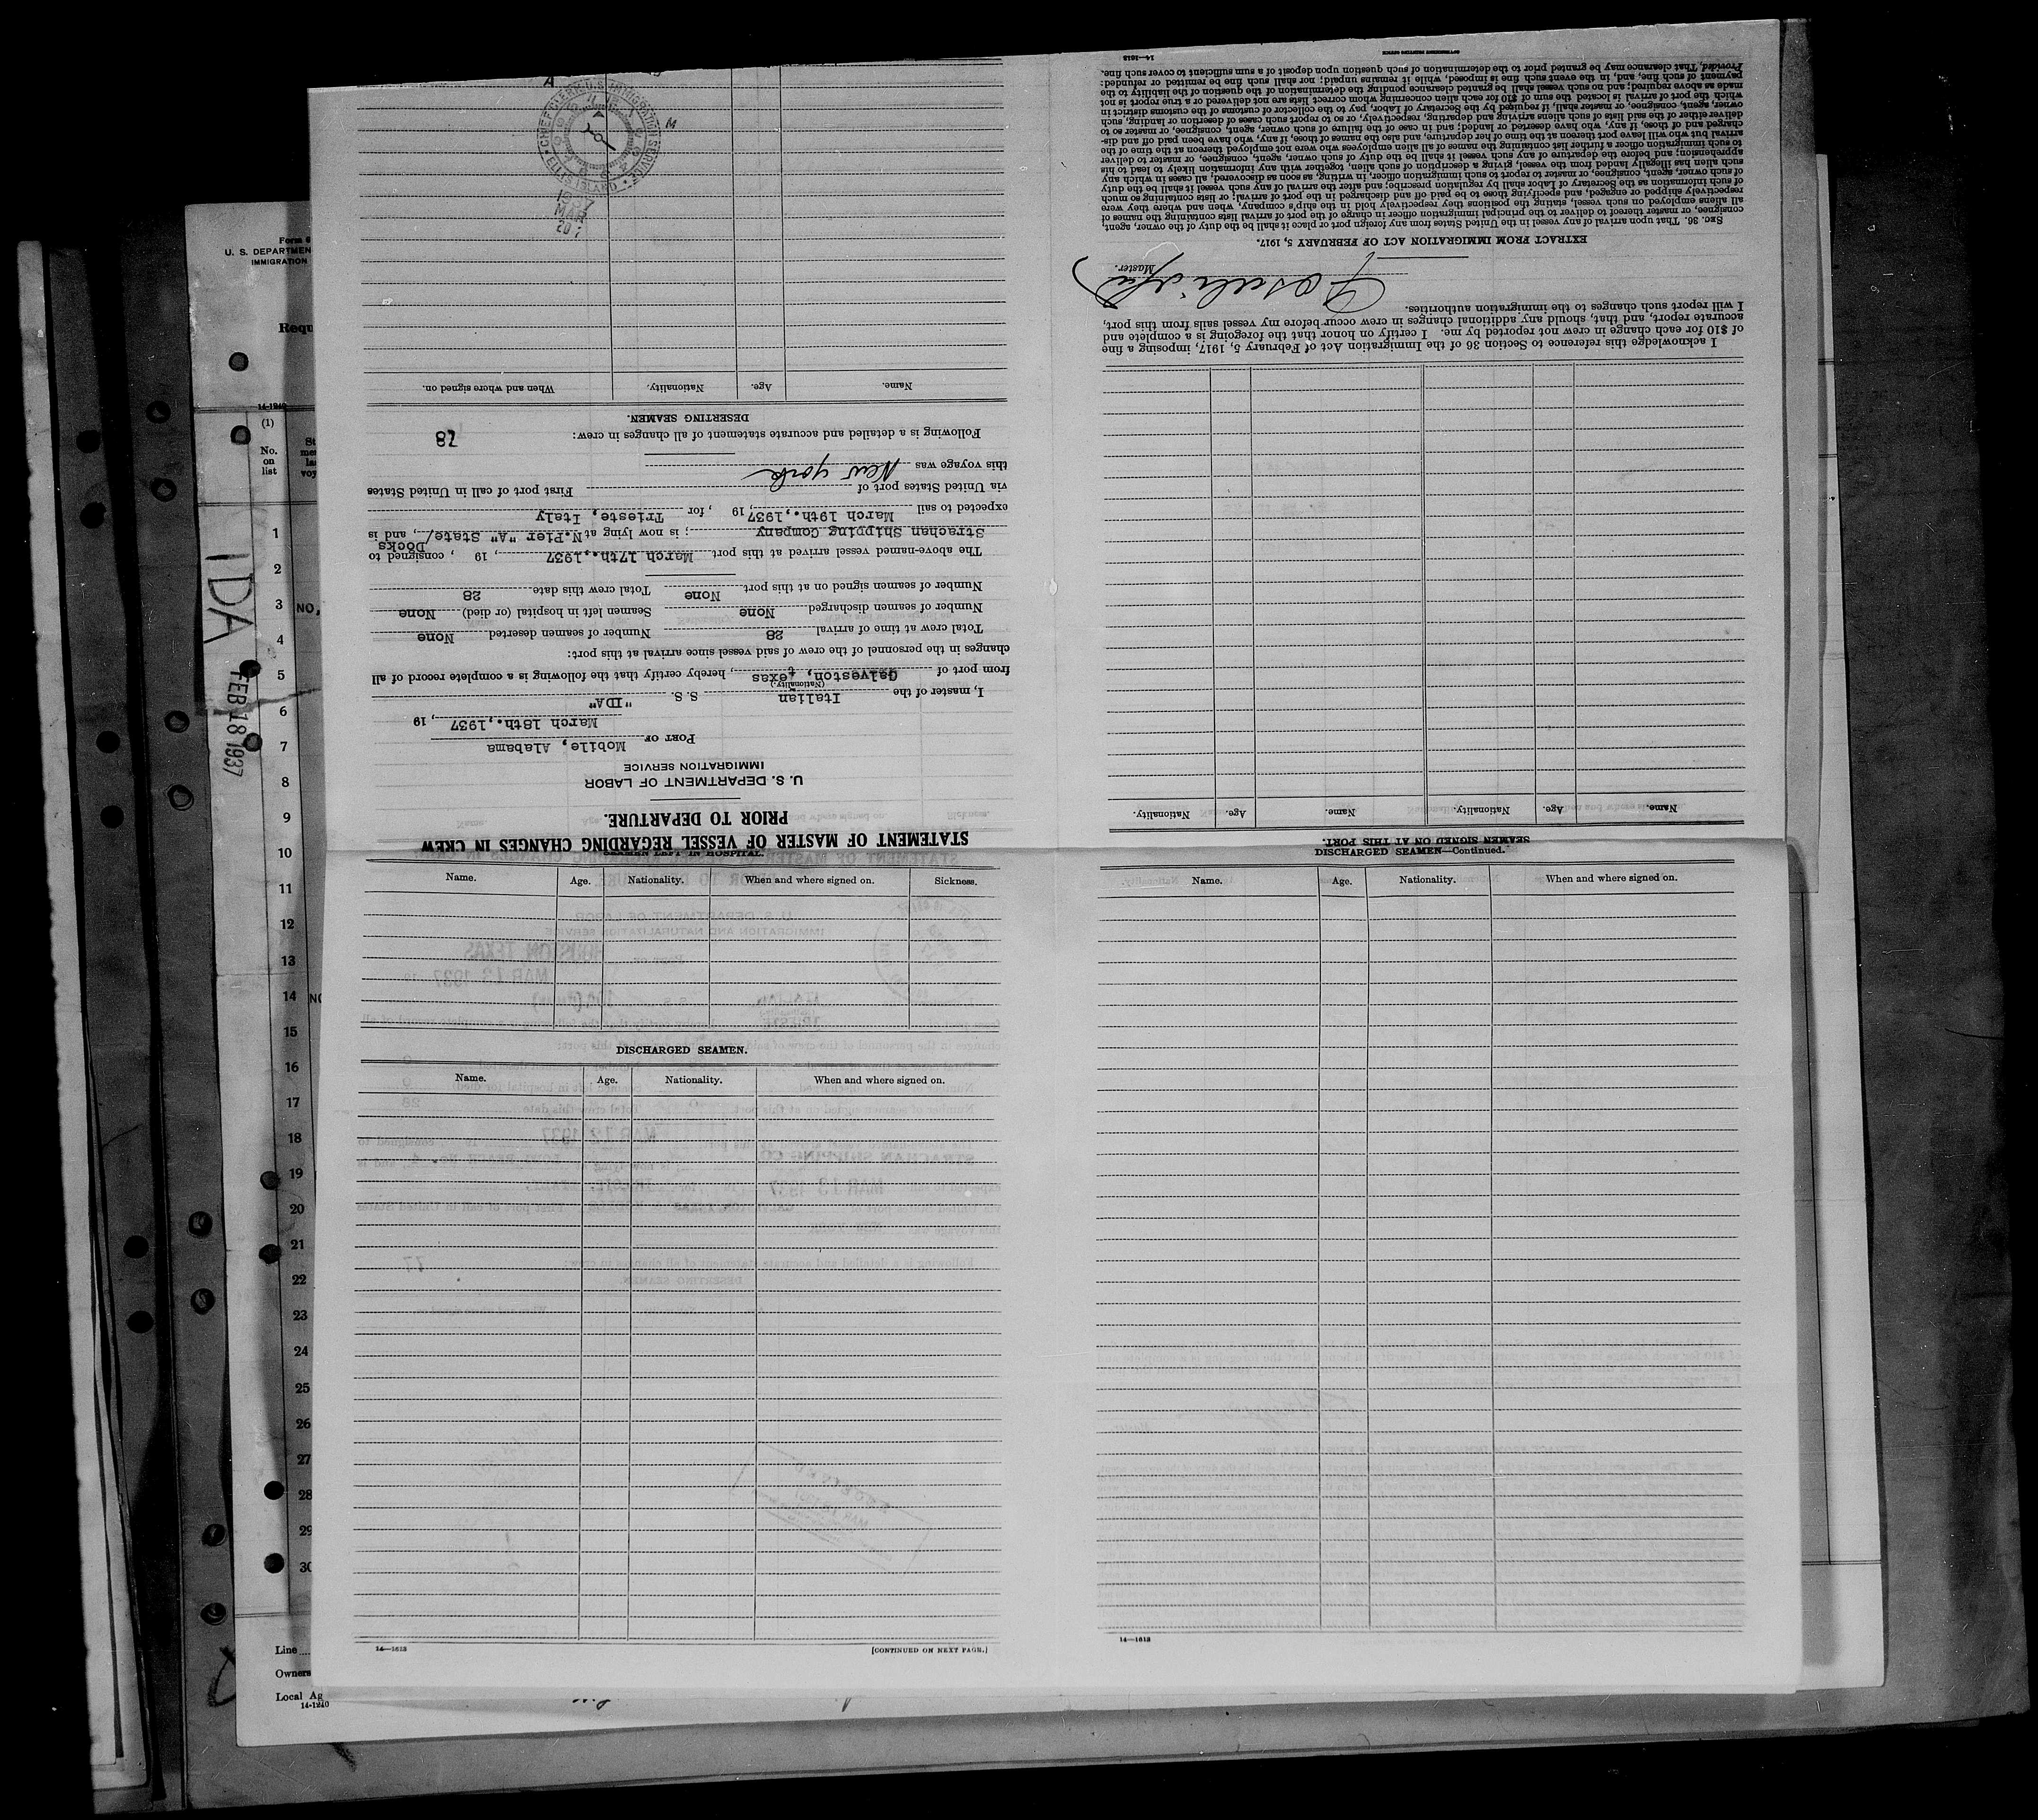 STATEMENT OF MASTER OF VESSEL REGARDING CHANGES IN CREW
PRIOR TO DEPARTURE.
U. S. DEPARTMENT OF LABOR
IMMIGRATION SERVICE
PORT OF Mobile, Alabama
March 18th.,1937, 19
I, master of the Italian S. S. "IDA"
(Nationality.)
from port of Galveston, texas, hereby certify that the following is a complete record of all
changes in the personnel of the crew of said vessel since arrival at this port:
Total crew at time of arrival 28 Number of seamen deserted None
Number of seamen discharged None Seamen left in hospital (or died) None
Number of seamen signed on at this port None Total crew this date 28
The above-named vessel arrived at this port March 17th.,1937, 19 , consigned to
Strachan Shipping Company ; is now lying at N.Pier "A" State/Docks, and is
expected to sail March 19th.,1937, 19 , for Trieste, Italy
via United States port of First port of call in United States
this voyage was New York
Following is a detailed and accurate statement of all changes in crew:
78
DESERTING SEAMEN.
Name. Age. Nationality. When and where signed on.
CHIEF CLERK U.S. IMMIGRATION SERVICE
ELLIS ISLAND
1937
MAR
SEAMEN SIGNED ON AT THIS PORT.
Name. Age. Nationality. Name. Age. Nationality.
I acknowledge this reference to Section 36 of the Immigration Act of February 5, 1917, imposing a fine
of $10 for each change in crew not reported by me. I certify on honor that the foregoing is a complete and
accurate report, and that, should any additional changes in crew occur before my vessel sails from this port,
I will report such changes to the immigration authorities.
Master.
EXTRACT FROM IMMIGRATION ACT OF FEBRUARY 5, 1917.
SEC. 36. That upon arrival of any vessel in the United States from any foreign port or place it shall be the duty of the owner, agent,
consignee, or master thereof to deliver to the principal immigration officer in charge of the port of arrival lists containing the names of
all aliens employed on such vessel, stating the positions they respectively hold in the ship's company, when and where they were
respectively shipped or engaged, and specifying those to be paid off and discharged in the port of arrival; or lists containing so much
of such information as the Secretary of Labor shall by regulation prescribe; and after the arrival of any such vessel it shall be the duty
of such owner, agent, consignee, or master to report to such immigration officer, in writing, as soon as discovered, all cases in which any
such alien has illegally landed from the vessel, giving a description of such alien, together with any information likely to lead to his
apprehension; and before the departure of any such vessel it shall be the duty of such owner, agent, consignee, or master to deliver
to such immigration officer a further list containing the names of all alien employees who were not employed thereon at the time of the
arrival but who will leave port thereon at the time of her departure, and also the names of those, if any, who have been paid off and dis-
charged and of those, if any, who have deserted or landed; and in case of the failure of such owner, agent, consignee, or master so to
deliver either of the said lists of such aliens arriving and departing, respectively, or so to report such cases of desertion or landing, such
owner, agent, consignee, or master, shall, if required by the Secretary of Labor, pay to the collector of customs of the customs district in
which the port of arrival is located the sum of $10 for each alien concerning whom correct lists are not delivered or a true report is not
made as above required; and no such vessel shall be granted clearance pending the determination of the question of the liability to the
payment of such fine, and, in the event such fine is imposed, while it remains unpaid; nor shall such fine be remitted or refunded:
Provided, That clearance may be granted prior to the determination of such question upon deposit of a sum sufficient to cover such fine.
14—1613
SEAMEN LEFT IN HOSPITAL.
Name. Age. Nationality. When and where signed on. Sickness.
DISCHARGED SEAMEN.
Name. Age. Nationality. When and where signed on.
14—1613
[CONTINUED ON NEXT PAGE.]
DISCHARGED SEAMEN—Continued.
Name. Age. Nationality. When and where signed on.
14—1613
U. S. DEPARTMEN
IMMIGRATION
Requ
14-1240
(1)
No.
on
list
1
2
3 NO,
4
5
6
7
8
9
10
11
12
13
14 NO
15
16
17
18
19
20
21
22
23
24
25
26
27
28
29
30
IDA
FEB 18 1937
Line
Owners
Local Ag
14-1240